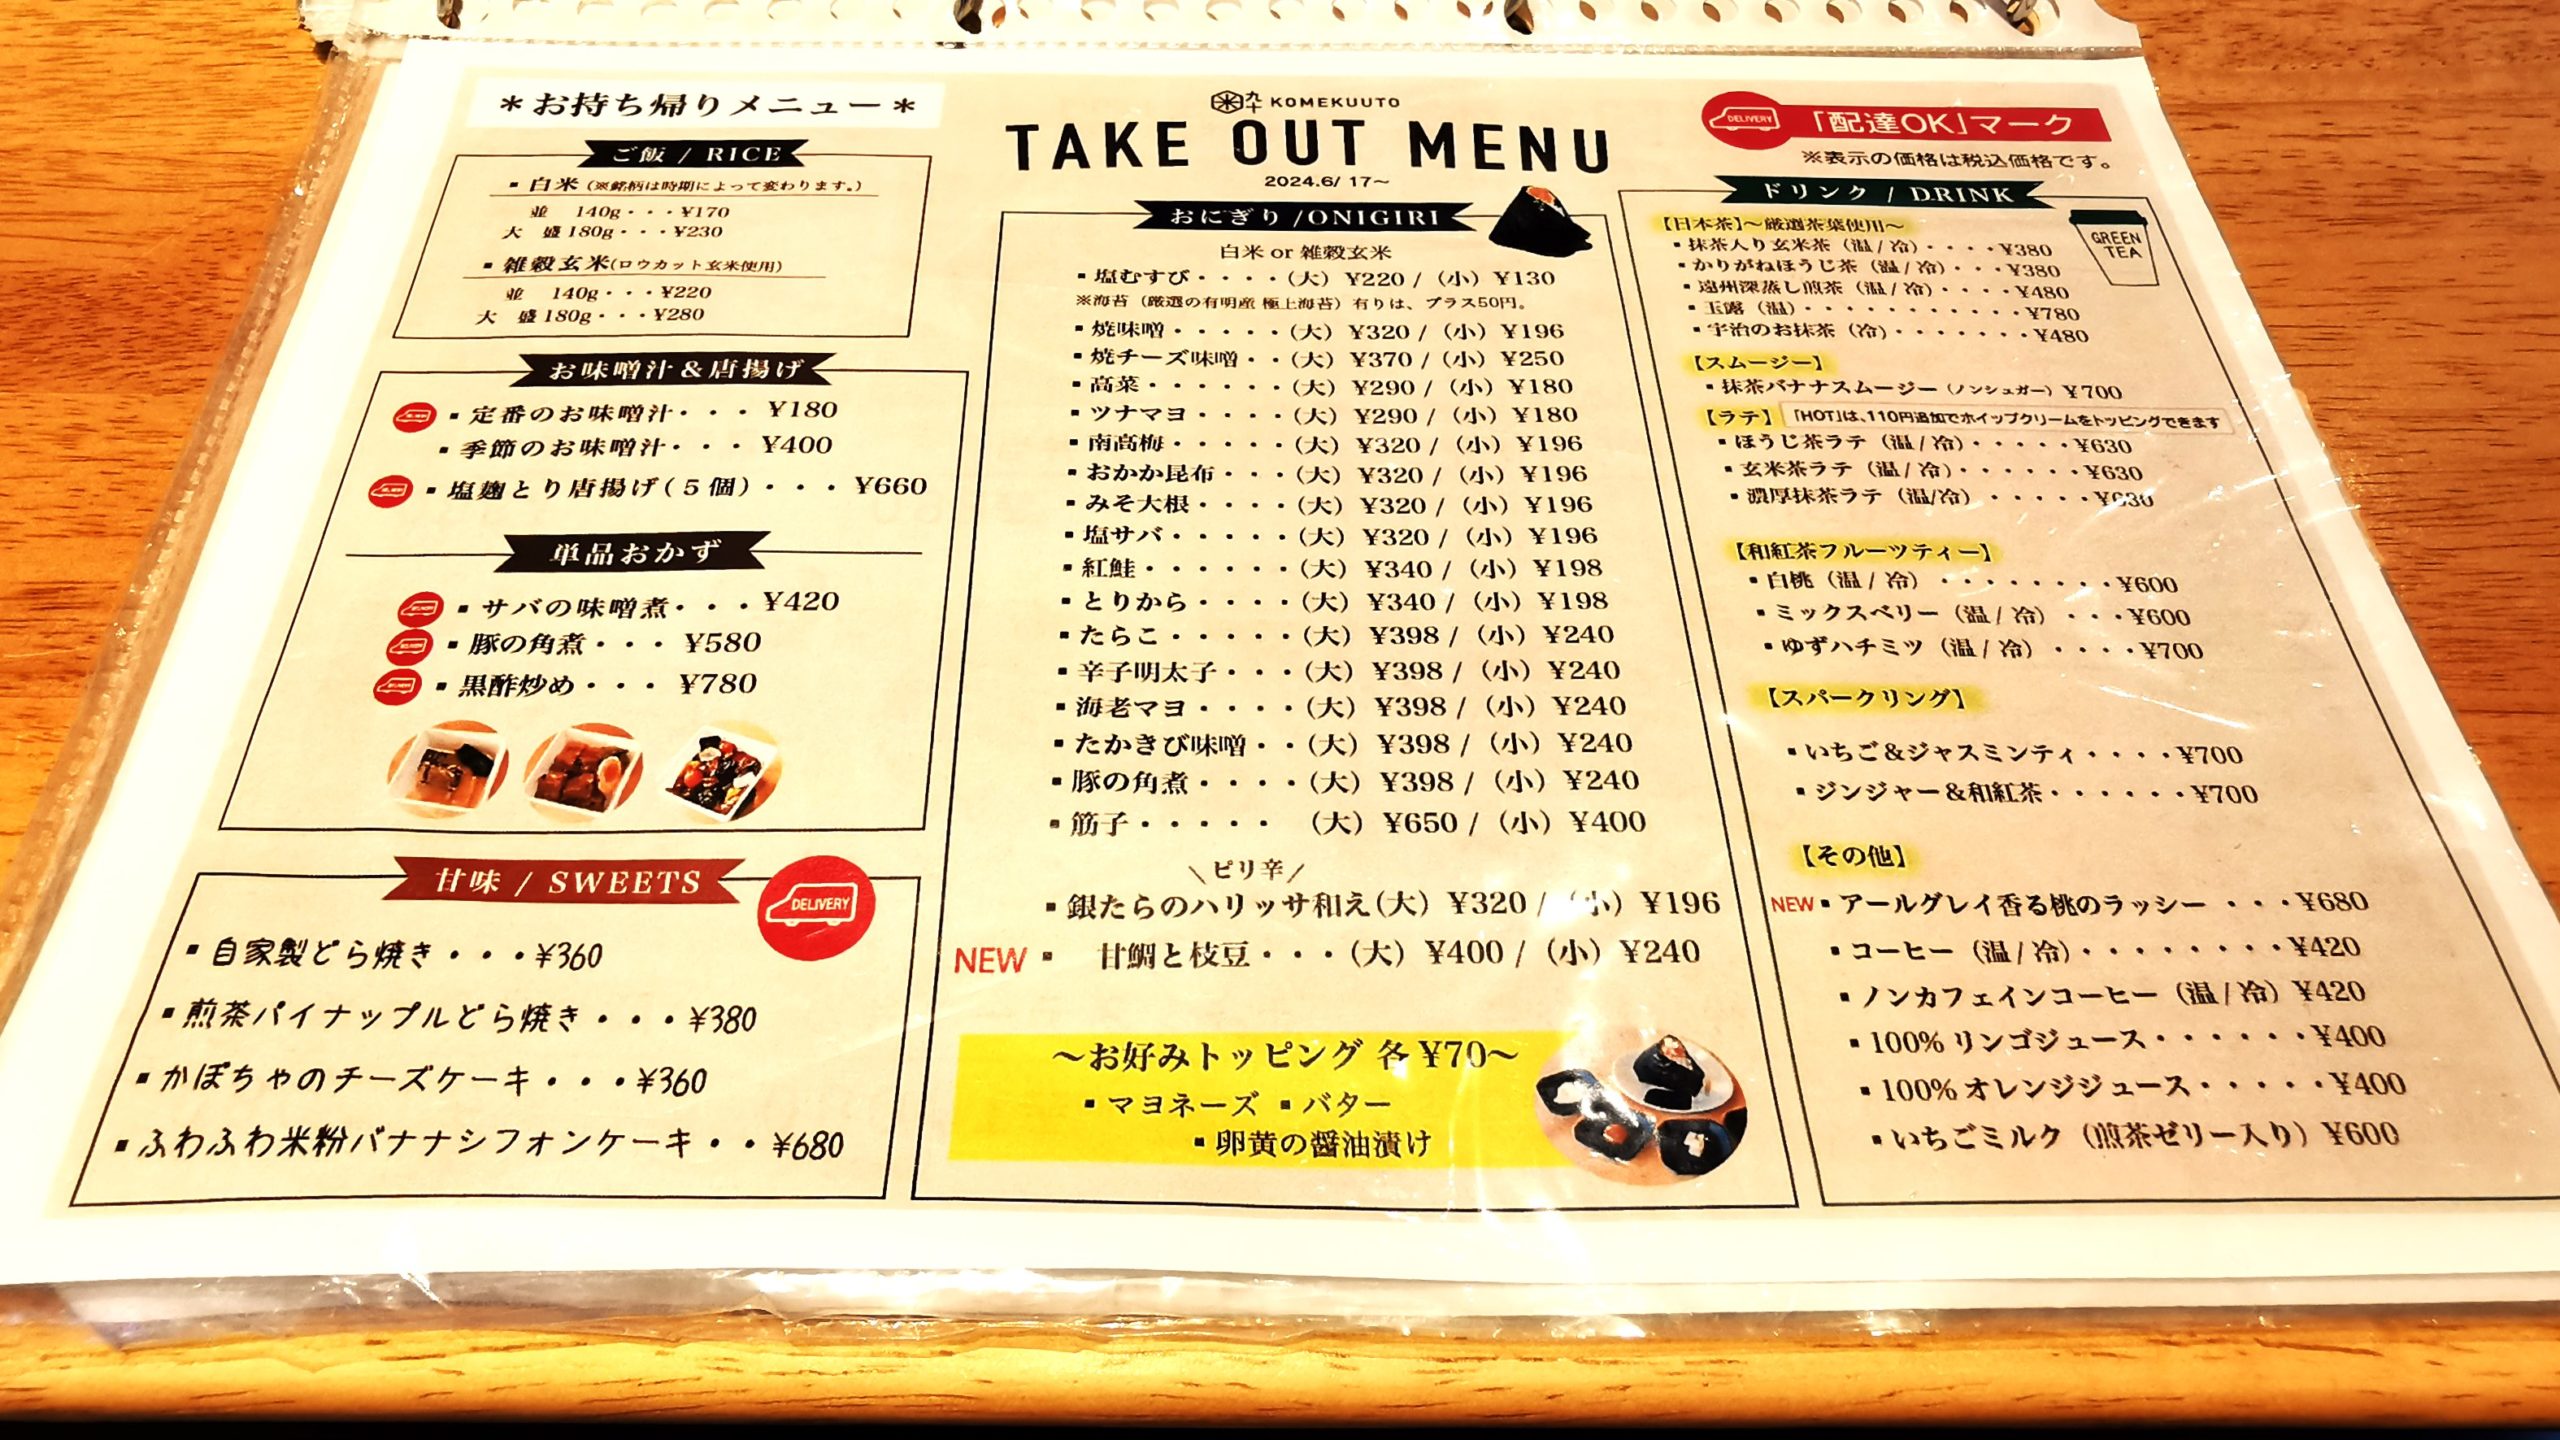 ＊お持ち帰りメニュー＊
ご飯 / RICE
▪白米（※銘柄は時期によって変わります。）
並 140g・・・¥170
大 盛 180g・・・¥230
▪雑穀玄米(ロウカット玄米使用)
並 140g・・・¥220
大 盛 180g・・・¥280
お味噌汁＆唐揚げ
▪定番のお味噌汁・・・ ¥180
▪季節のお味噌汁・・・ ¥400
▪塩麹とり唐揚げ(５個)・・・ ¥660
単品おかず
▪サバの味噌煮・・・¥420
▪豚の角煮・・・ ¥580
▪黒酢炒め・・・ ¥780
甘味 / SWEETS
DELIVERY
▪自家製どら焼き・・・¥360
▪煎茶パイナップルどら焼き・・・¥380
▪かぼちゃのチーズケーキ・・・¥360
▪ふわふわ米粉バナナシフォンケーキ・・¥680
米九十 KOMEKUUTO
TAKE OUT MENU
2024.6/ 17〜
おにぎり /ONIGIRI
白米 or 雑穀玄米
▪塩むすび・・・・(大) ¥220 / (小) ¥130
※海苔（厳選の有明産 極上海苔）有りは、プラス50円。
▪焼味噌・・・・・(大) ¥320 / (小) ¥196
▪焼チーズ味噌・・(大) ¥370 / (小) ¥250
▪高菜・・・・・・(大) ¥290 / (小) ¥180
▪ツナマヨ・・・・(大) ¥290 / (小) ¥180
▪南高梅・・・・・(大) ¥320 / (小) ¥196
▪おかか昆布・・・(大) ¥320 / (小) ¥196
▪みそ大根・・・・(大) ¥320 / (小) ¥196
▪塩サバ・・・・・(大) ¥320 / (小) ¥196
▪紅鮭・・・・・・(大) ¥340 / (小) ¥198
▪とりから・・・・(大) ¥340 / (小) ¥198
▪たらこ・・・・・(大) ¥398 / (小) ¥240
▪辛子明太子・・・(大) ¥398 / (小) ¥240
▪海老マヨ・・・・(大) ¥398 / (小) ¥240
▪たかきび味噌・・(大) ¥398 / (小) ¥240
▪豚の角煮・・・・(大) ¥398 / (小) ¥240
▪筋子・・・・・ (大) ¥650 / (小) ¥400
＼ピリ辛／
▪銀たらのハリッサ和え(大) ¥320 / (小) ¥196
NEW▪ 甘鯛と枝豆・・・(大) ¥400 / (小) ¥240
〜お好みトッピング 各 ¥70〜
▪マヨネーズ ▪バター
▪卵黄の醤油漬け
DELIVERY 「配達OK」マーク
※表示の価格は税込価格です。
ドリンク / DRINK
GREEN TEA
【日本茶】〜厳選茶葉使用〜
▪抹茶入り玄米茶（温 / 冷）・・・・¥380
▪かりがねほうじ茶（温 / 冷）・・・¥380
▪遠州深蒸し煎茶（温 / 冷）・・・・¥480
▪玉露（温）・・・・・・・・・・・¥780
▪宇治のお抹茶（冷）・・・・・・・¥480
【スムージー】
▪抹茶バナナスムージー（ノンシュガー）¥700
【ラテ】「HOT」は、110円追加でホイップクリームをトッピングできます
▪ほうじ茶ラテ（温 / 冷）・・・・・¥630
▪玄米茶ラテ（温 / 冷）・・・・・・¥630
▪濃厚抹茶ラテ（温/冷）・・・・・¥630
【和紅茶フルーツティー】
▪白桃（温 / 冷）・・・・・・・・¥600
▪ミックスベリー（温 / 冷）・・・¥600
▪ゆずハチミツ（温 / 冷）・・・・¥700
【スパークリング】
▪いちご＆ジャスミンティ・・・・¥700
▪ジンジャー＆和紅茶・・・・・・¥700
【その他】
NEW▪アールグレイ香る桃のラッシー・・・¥680
▪コーヒー（温 / 冷）・・・・・・・・¥420
▪ノンカフェインコーヒー（温 / 冷）¥420
▪100% リンゴジュース・・・・・・¥400
▪100% オレンジジュース・・・・・¥400
▪いちごミルク（煎茶ゼリー入り）¥600